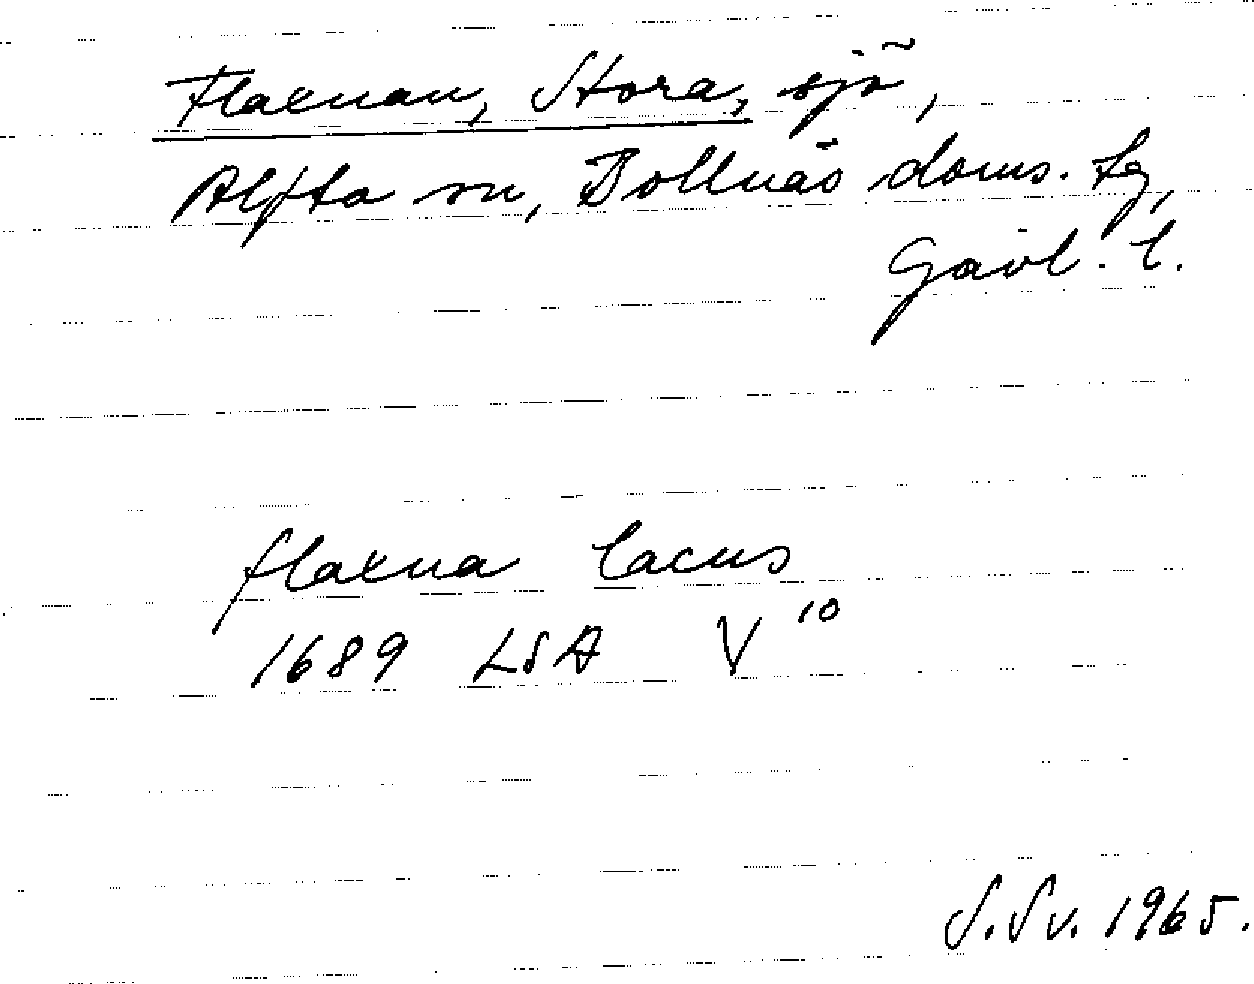 Flaxnan, Stora, sjö,
Alfta sn, Bollnäs doms. tg,
Gävl. l.
flaxna lacus
1689 LSA V¹⁰
S. Sv. 1965.